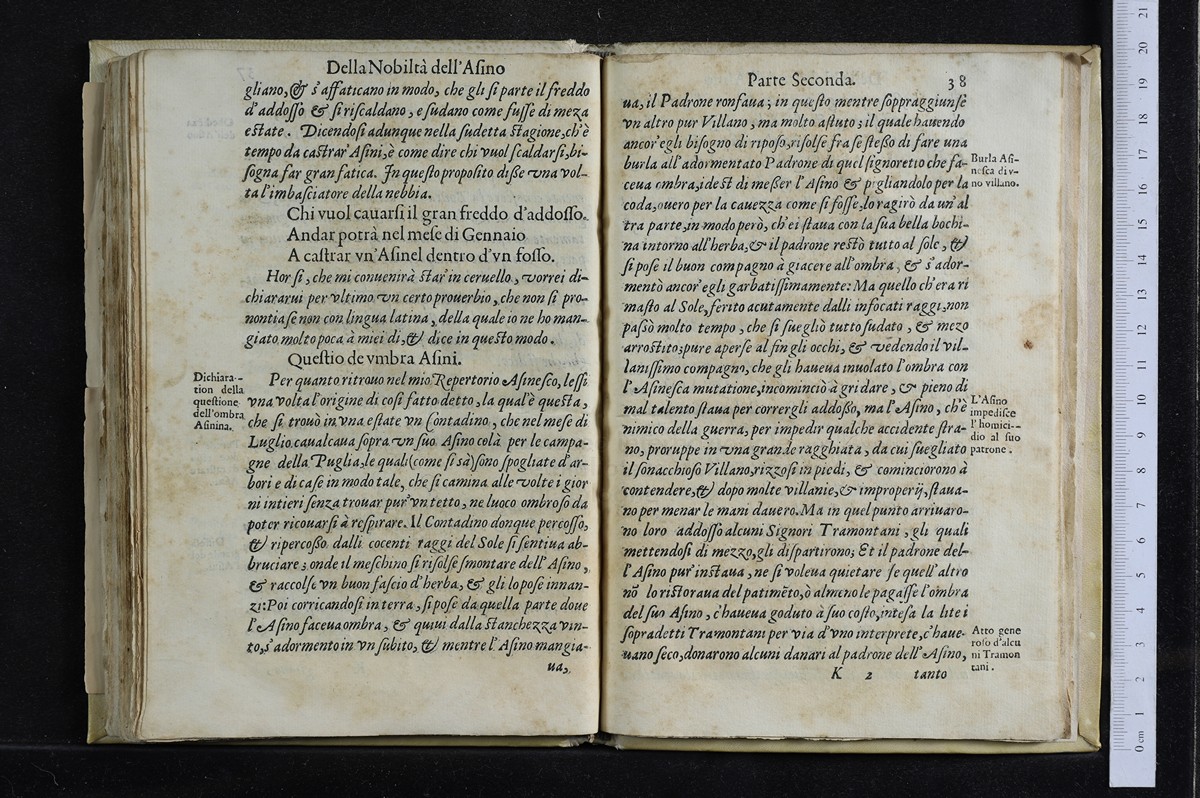 Della Nobiltà dell'Aſino
gliano, & s'affaticano in modo, che gli ſi parte il freddo
d'addoſſo & ſi riſcaldano, e ſudano come fuſſe di meza
eſtate. Dicendoſi adunque nella ſudetta ſtagione, ch'è
tempo da caſtrar' Aſini, è come dire chi vuol ſcaldarſi, bi-
ſogna far gran fatica. In queſto propoſito diße vna vol-
ta l'imbaſciatore della nebbia.
Chi vuol cauarſi il gran freddo d'addoſſo.
Andar potrà nel meſe di Gennaio
A caſtrar vn'Aſinel dentro d'vn foſſo.
Hor ſi, che mi conuenirà ſtar' in ceruello, vorrei di-
chiararui per vltimo vn certo prouerbio, che non ſi pro-
nontiaſe non con lingua latina, della quale io ne ho man-
giato molto poca à miei dì, & dice in queſto modo.
Queſtio de vmbra Aſini.
Dichiara-
tion della
queſtione
dell'ombra
Aſinina.
Per quanto ritrouo nel mio Repertorio Aſineſco, leſſi
vna volta l'origine di coſi fatto detto, la qual'è queſta,
che ſi trouò in vna eſtate vn Contadino, che nel meſe di
Luglio caualcaua ſopra vn ſuo Aſino colà per le campa-
gne della Puglia, le quali (come ſi sà) ſono ſpogliate d'ar-
bori e di caſe in modo tale, che ſi camina alle volte i gior
ni intieri ſenza trouar pur' vn tetto, ne luoco ombroſo da
poter ricouarſi à reſpirare. Il Contadino donque percoſſo,
& ripercoßo dalli cocenti raggi del Sole ſi ſentiua ab-
bruciare; onde il meſchino ſi riſolſe ſmontare dell'Aſino,
& raccolſe vn buon faſcio d'herba, & gli lo poſe innan-
zi: Poi corricandoſi in terra, ſi poſe da quella parte doue
l'Aſino faceua ombra, & quiui dalla ſtanchezza vin-
to, s'adormento in vn ſubito, & mentre l'Aſino mangia-
ua,
Parte Seconda.
38
ua, il Padrone ronfaua; in queſto mentre ſoppraggiunſe
vn altro pur Villano, ma molto aſtuto; il quale hauendo
ancor'egli biſogno di ripoſo, riſolſe fra ſe ſteßo di fare una
burla all'adormentato Padrone di quel ſignoretto che fa-
ceua ombra, ideſt di meßer l'Aſino & pigliandolo per la
coda, ouero per la cauezza come ſi foſſe, lo ragirò da un'al
tra parte, in modo però, ch'ei ſtaua con la ſua bella bochi-
na intorno all'herba, & il padrone reſtò tutto al ſole, &
ſi poſe il buon compagno à giacere all'ombra, & s'ador-
mentò ancor'egli garbatiſſimamente: Ma quello ch'era ri
maſto al Sole, ferito acutamente dalli infocati raggi, non
paſsò molto tempo, che ſi ſuegliò tutto ſudato, & mezo
arroſtito; pure aperſe al fin gli occhi, & vedendo il vil-
laniſſimo compagno, che gli haueua inuolato l'ombra con
l'Aſineſca mutatione, incominciò à gridare, & pieno di
mal talento ſtaua per corrergli addoßo, ma l'Aſino, ch'è
nimico della guerra, per impedir qualche accidente ſtra-
no, proruppe in vna grande ragghiata, da cui ſuegliato
il ſonacchioſo Villano, rizzoſi in piedi, & cominciorono à
contendere, & dopo molte villanie, & improperij, ſtaua-
no per menar le mani dauero. Ma in quel punto arriuaro-
no loro addoſſo alcuni Signori Tramontani, gli quali
mettendoſi di mezzo, gli diſpartirono; Et il padrone del-
l'Aſino pur' inſtaua, ne ſi voleua quietare ſe quell'altro
nõ lo riſtoraua del patimẽto, ò almeno le pagaſſe l'ombra
del ſuo Aſino, c'haueua goduto à ſuo coſto, inteſa la lite i
ſopradetti Tramontani per via d'vno interprete, c'haue-
uano ſeco, donarono alcuni danari al padrone dell'Aſino,
K 2 tanto
Burla Aſi-
neſca di v-
no villano.
L'Aſino
impediſce
l'homici-
dio al ſuo
patrone.
Atto gene
roſo d'alcu
ni Tramon
tani.
0 cm 1 2 3 4 5 6 7 8 9 10 11 12 13 14 15 16 17 18 19 20 21